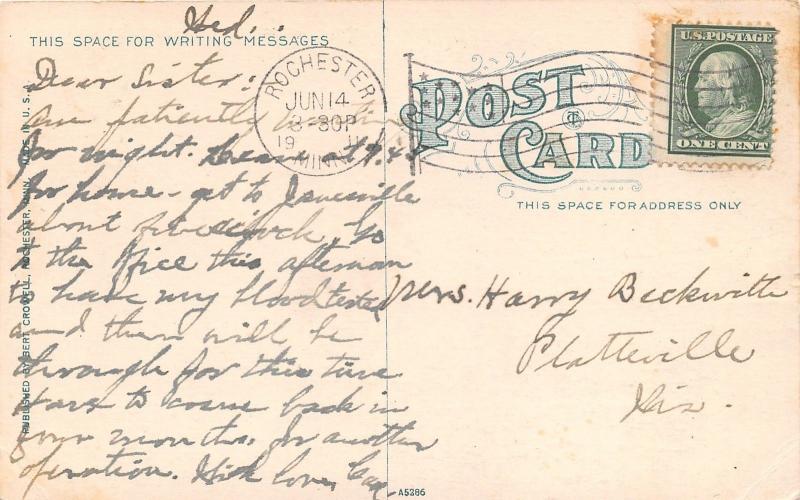 Wed.
THIS SPACE FOR WRITING MESSAGES
Dear Sister:
Am patiently waiting
for night. Leave at 9.44
for home - get to Janesville
about five o'clock, Go
to the office this afternoon
to have my blood tested
and then will be
through for this time
Have to come back in
four months for another
operation. With love,
ROCHESTER
JUN 14
3-30P
1911
MINN.
POST
CARD
THIS SPACE FOR ADDRESS ONLY
U.S. POSTAGE
ONE CENT
Mrs. Harry Beckwith
Platteville
Wis.
PUBLISHED BY BERT CROWELL, ROCHESTER, MINN. MADE IN U.S.A.
A5286